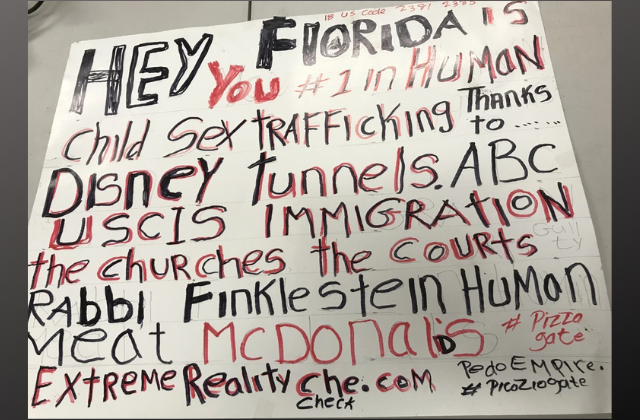 18 US Code 2381 2385
HEY FlORiDA iS
You #1 in HUMAN
Child Sex tRAFFicking Thanks
to ......
DisNey tunnels. ABC
USCIS IMMIGRAtiON
Guilty
the cHuRches the CoURtS
RAbbi Finklestein HUMan
Meat McDonalDS # Pizza
gate
ExtREMe Reality che.coM PedoEMPire.
check # PicoZiogate